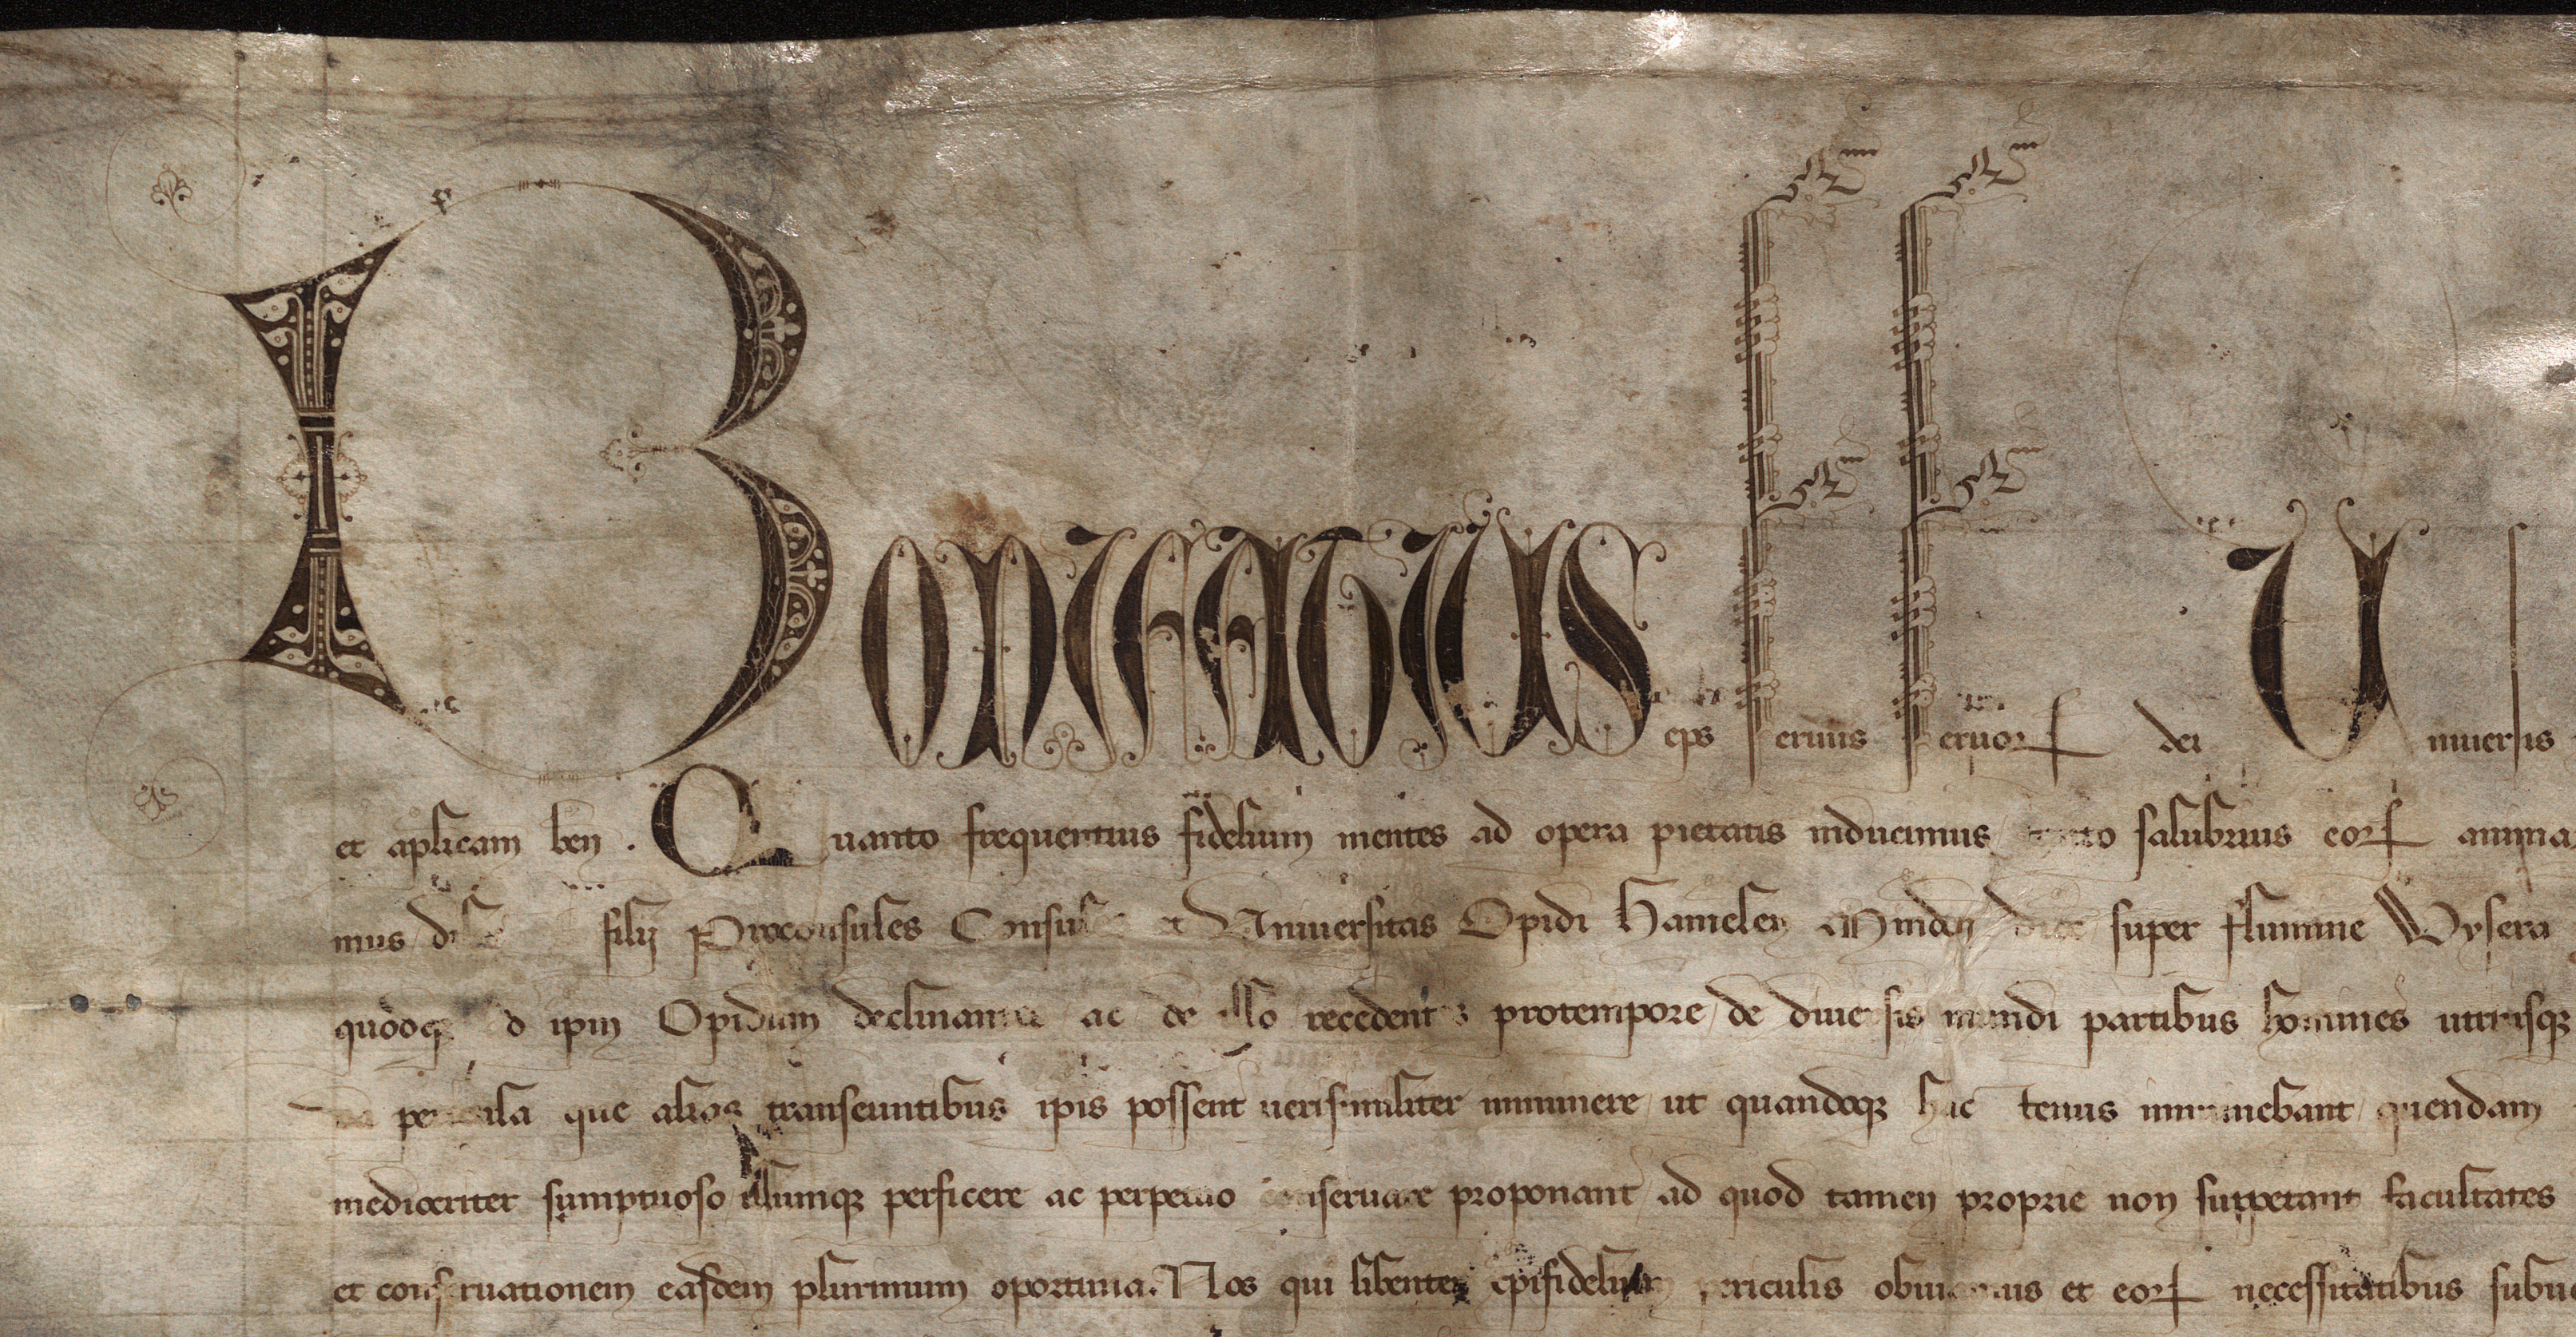 Bonifatius eps seruus seruorꝭ dei Uniuersis
et aplicam ben . Quanto frequentius fidelium mentes ad opera pietatis inducimus salubrius eorꝭ anima
mus filij Proconsules Consules et Uniuersitas Opidi Hamelen Minden super flumine Wysera
quodqꝫ ipm Opidum ac de illo recedentes protempore de diuersis mundi partibus homines utriusqꝫ
pericula que alias transeuntibus ipis possent uerisimiliter imminere ut quandoqꝫ hac tenus imminebant quendam
mediocriter sumptuoso illumqꝫ perficere ac perpetuo conseruare proponant ad quod tamen proprie non suppetant facultates
et conseruationem easdem plurimum oportuna. Nos qui libenter xpifidelium periculis obuiamus et eorꝭ necessitatibus subue